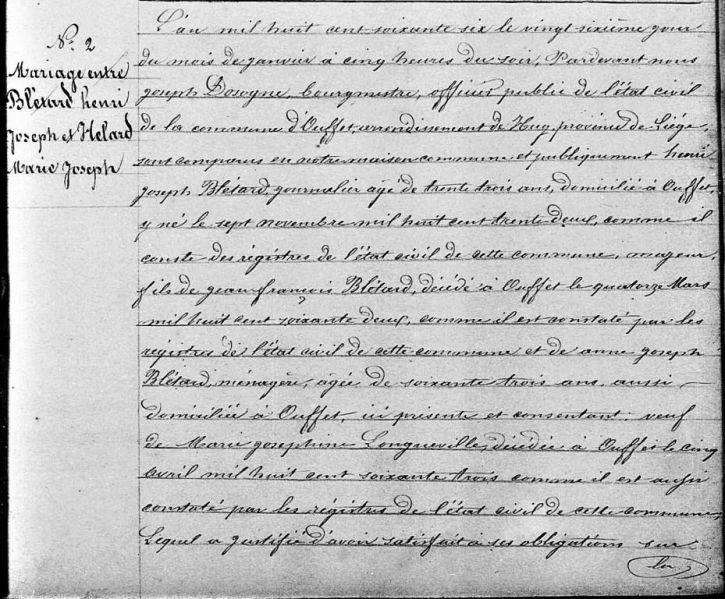 N.° 2
Mariage entre
Blétard henri
Joseph et Helard
Marie Joseph
L'an mil huit cent soixante six le vingt sixième jour
du mois de janvier à cinq heures du soir, Pardevant nous
joseph Dosogne, bourgmestre, officier public de l'état civil
de la commune d'Ouffet, arrondissement de Huy, province de Liége,
sont comparus en notre maison commune et publiquement henri
joseph Blétard, journalier âgé de trente trois ans, domicilié à Ouffet,
y né le sept novembre mil huit cent trente deux, comme il
conste des régistres de l'état civil de cette commune, majeur,
fils de jean françois Blétard, décédé à Ouffet le quatorze Mars
mil huit cent soixante deux, comme il est constaté par les
régistres de l'état civil de cette commune et de anne joseph
Blétard, ménagère, âgée de soixante trois ans, aussi
domiciliée à Ouffet, ici présente et consentant; veuf
de Marie josephine Longueville, décédée à Ouffet le cinq
avril mil huit cent soixante trois comme il est aussi
constaté par les régistres de l'état civil de cette commune,
Lequel a justifié d'avoir satisfait à ses obligations sur
la